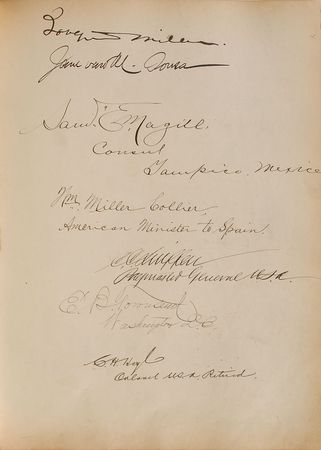 Miller.
Jane van M. Sousa
Saml. E. Magill,
Consul
Tampico, Mexico
Wm. Miller Collier,
American Minister to Spain.
Paymaster General U.S.A.
E. B. Townsend
Washington D.C.
C. H. Hoyt
Colonel U.S.A. Retired.